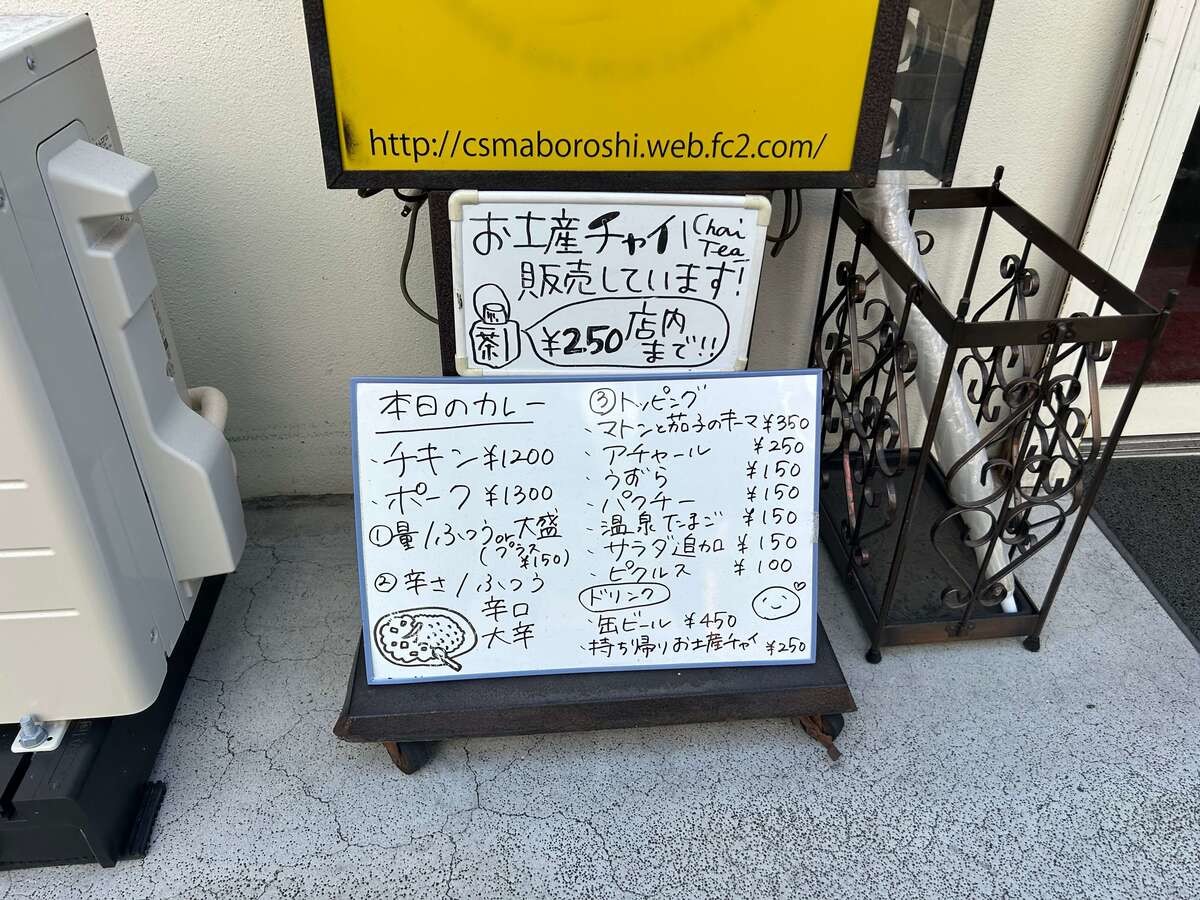 http://csmaboroshi.web.fc2.com/
お土産チャイ! Chai Tea
販売しています!
茶
¥250 店内まで!!
本日のカレー
・チキン ¥1200
・ポーク ¥1300
①量/ふつうor大盛
(プラス¥150)
②辛さ/ふつう
辛口
大辛
③トッピング
・マトンと茄子のキーマ ¥350
・アチャール ¥250
・うずら ¥150
・パクチー ¥150
・温泉たまご ¥150
・サラダ追加 ¥150
・ピクルス ¥100
ドリンク
・缶ビール ¥450
・持ち帰りお土産チャイ ¥250